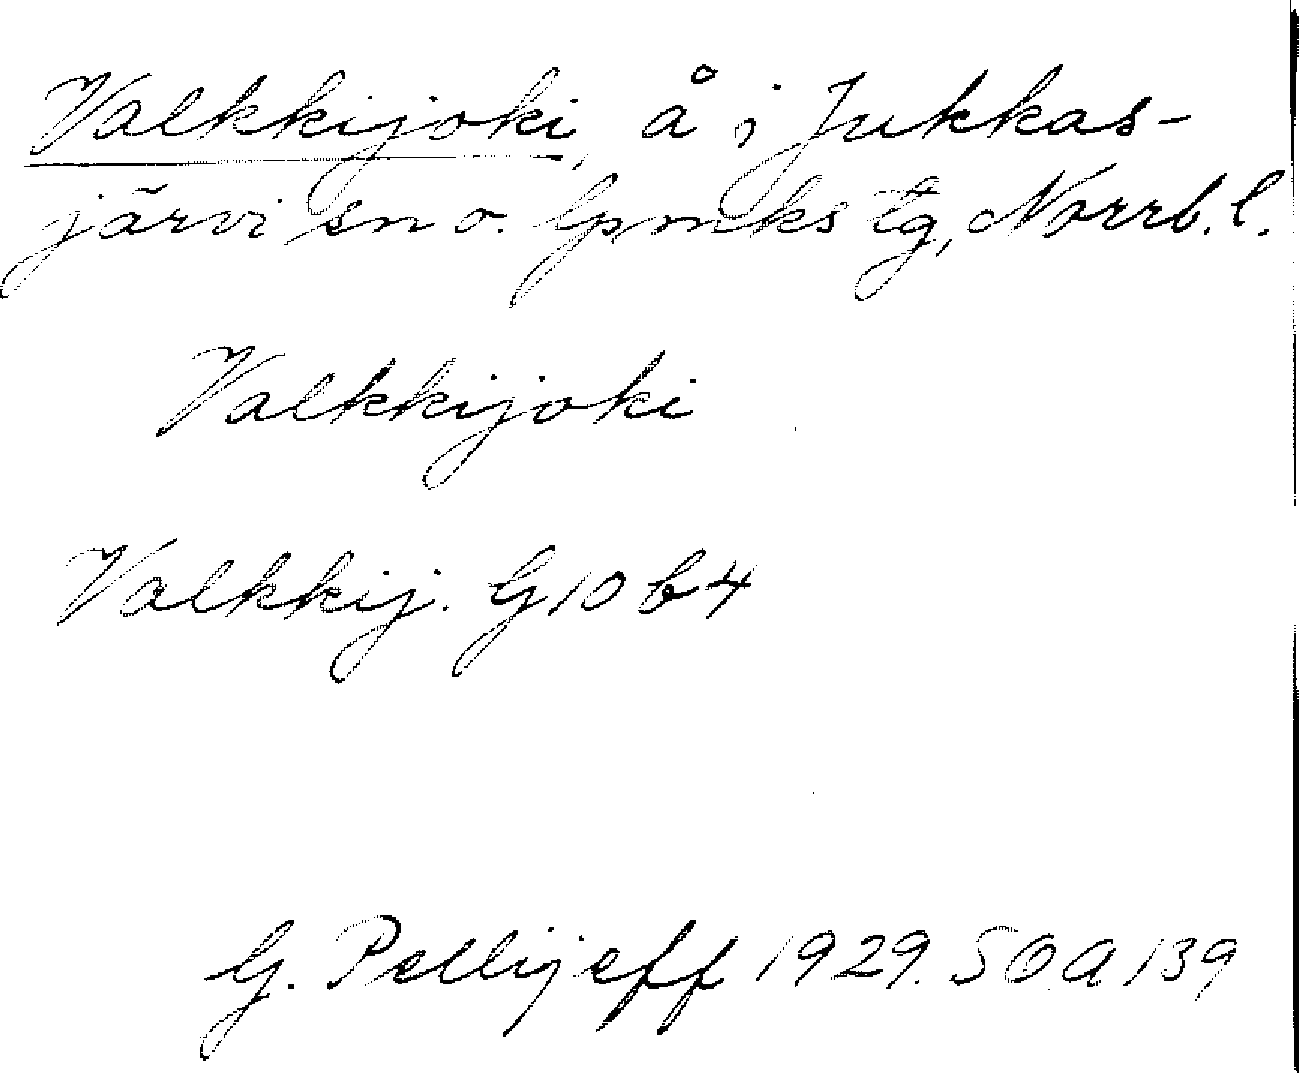 Valkkijoki, å i Jukkas-
järvi sn o. lpmks tg, Norrb. l.
Valkkijoki
Valkkij. G 10 b 4
G. Pellijeff 1929. SOA 139